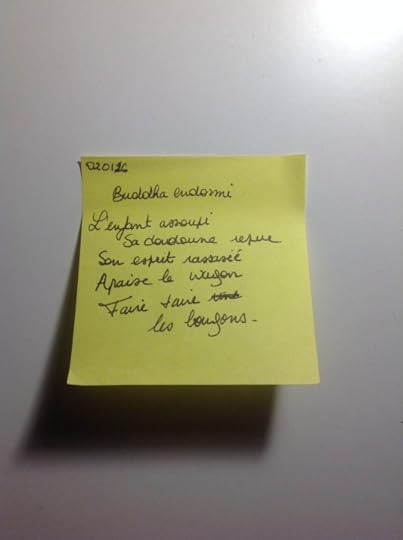 020116
Buddha endormi
L'enfant assoupi
Sa doudoune repue
Son esprit rassasié
Apaise le wagon
Faire taire
les bougons.